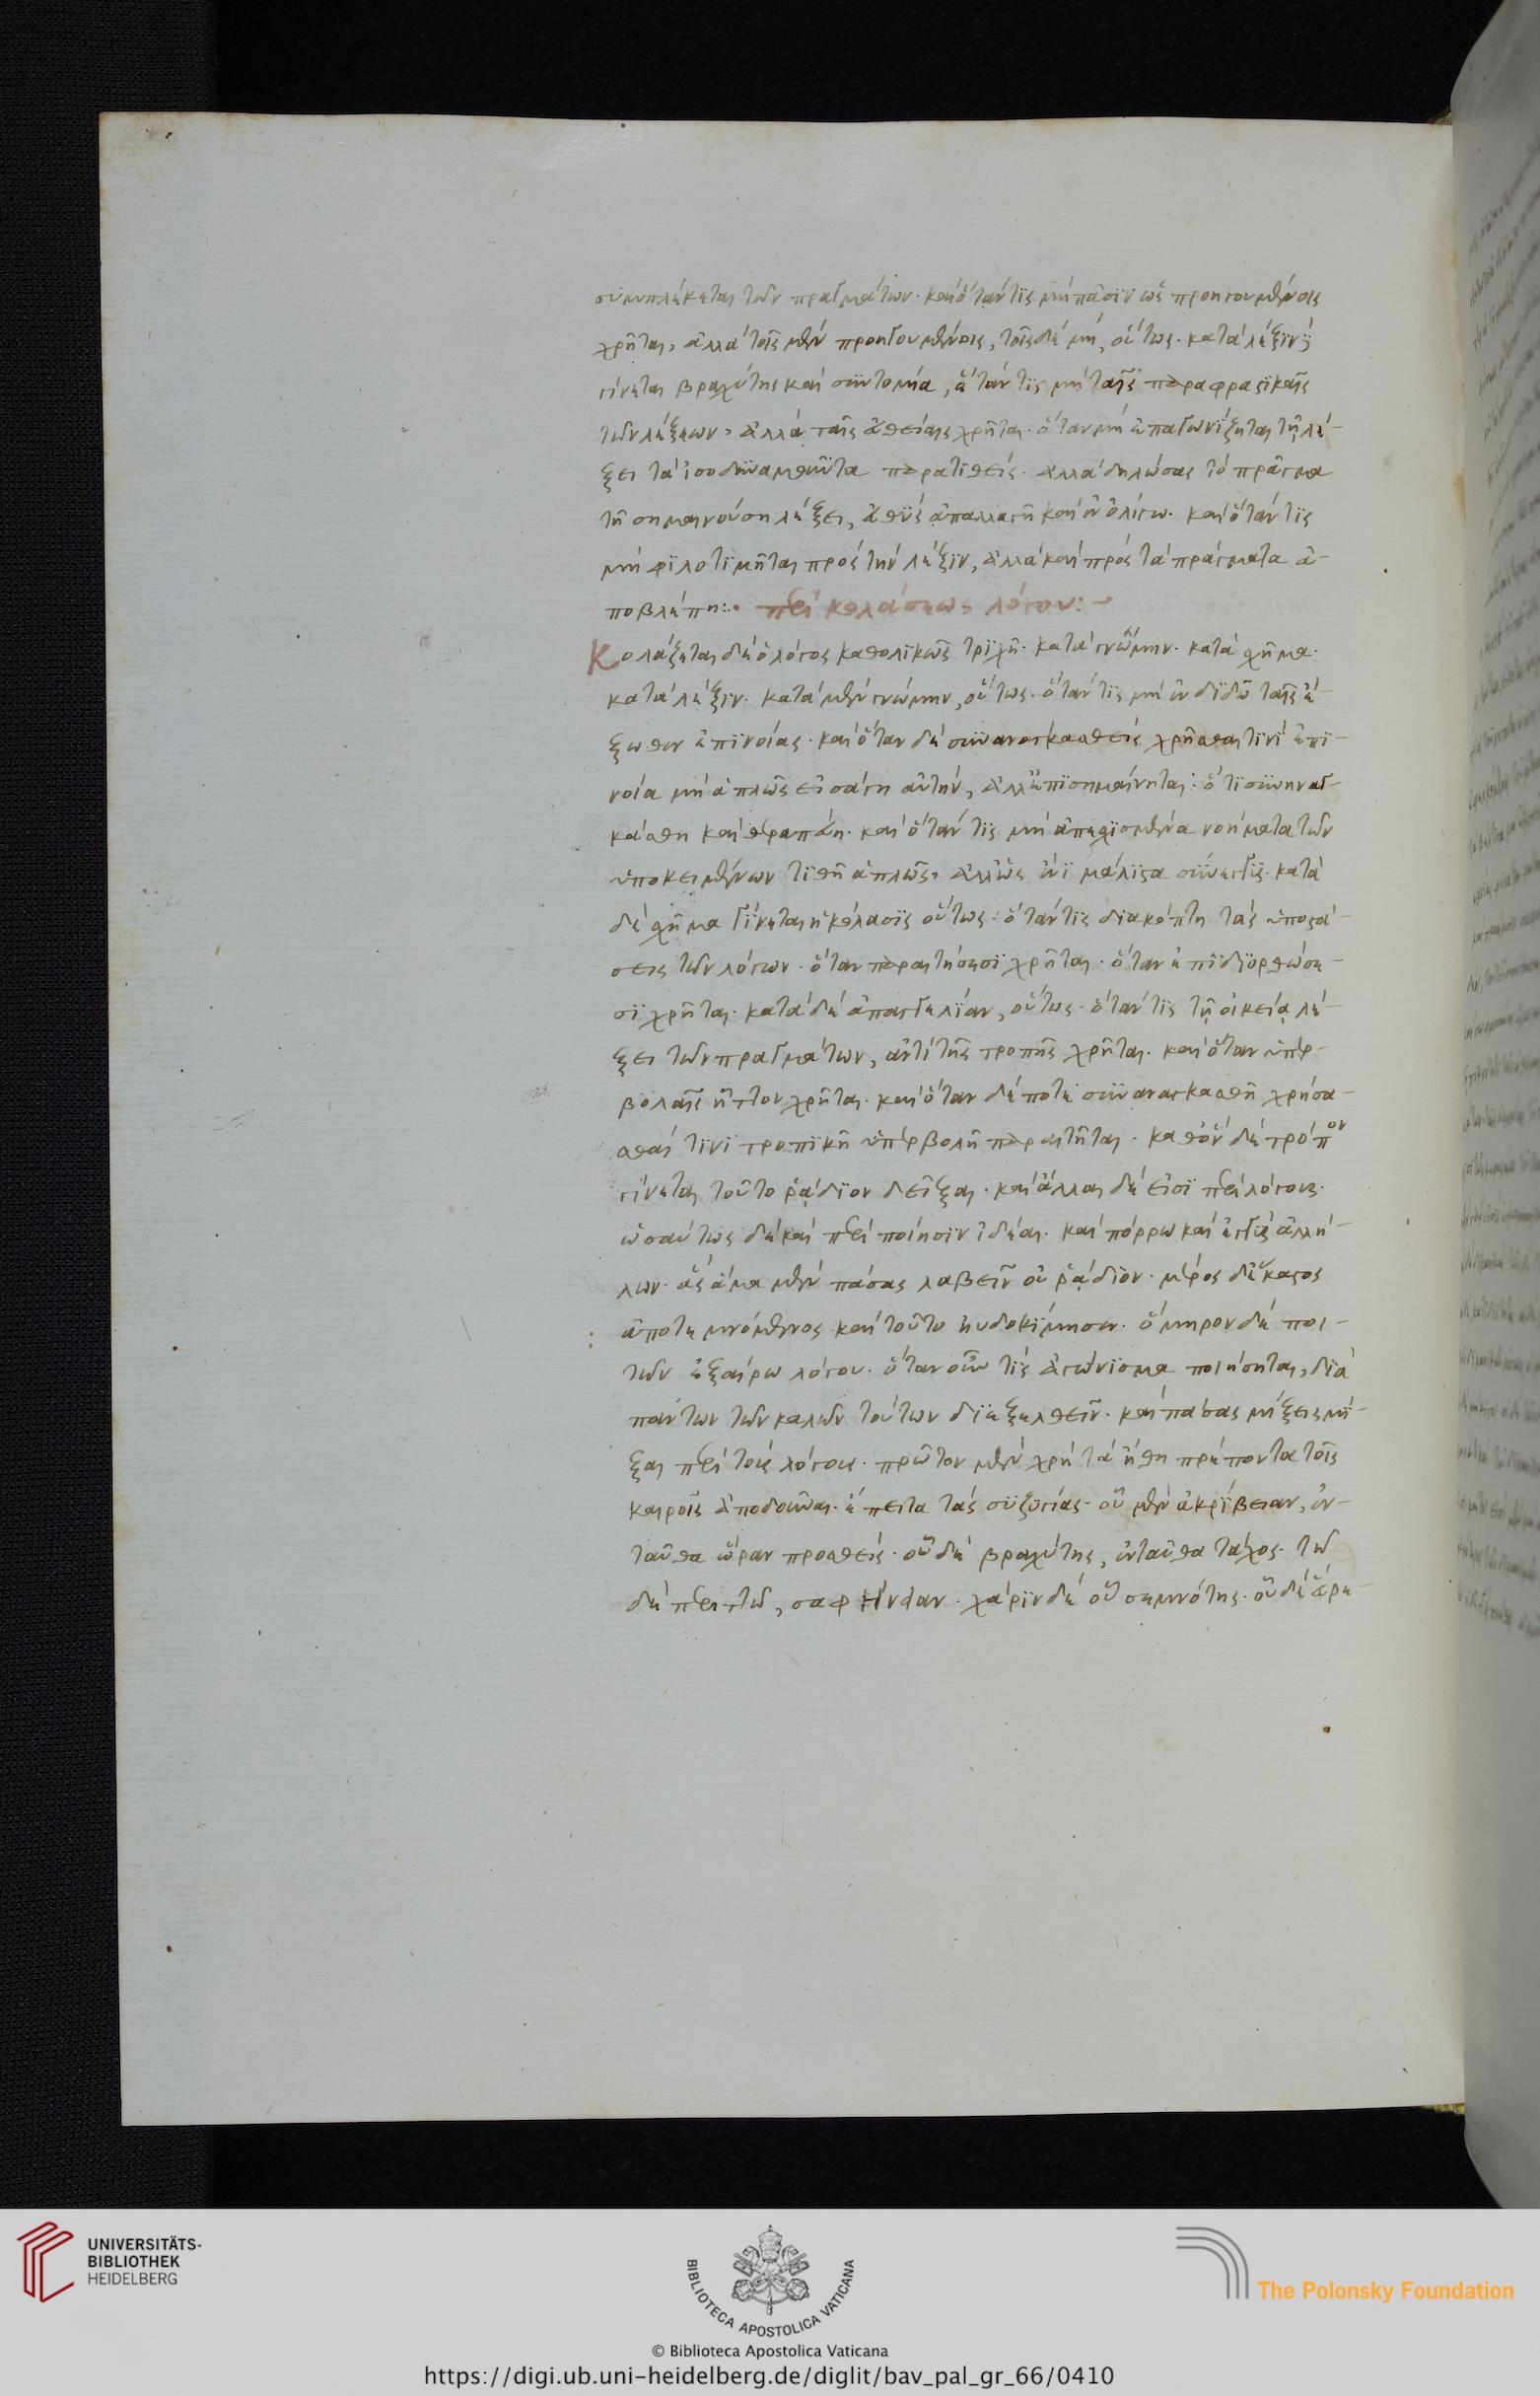 συμπλέκεται τῶν πραγμάτων· καὶ ὅτάν τις μὴ πᾶσιν ὡς προηγουμένοις
χρῆται, ἀλλὰ τοῖς μὲν προηγουμένοις, τοῖς δὲ μή, οὕτως· κατὰ λέξιν δὲ
γίνεται βραχύτης καὶ συντομία, ὅτάν τις μὴ ταῖς παραφραστικαῖς
τῶν λέξεων, ἀλλὰ ταῖς εὐθείαις χρῆται· ὅταν μὴ ἐπαγωνίζηται τῇ λέ-
ξει τὰ ἰσοδυναμοῦντα παρατιθείς· ἀλλὰ δηλώσας τὸ πρᾶγμα
τῇ σημαινούσῃ λέξει, εὐθὺς ἀπαλλαγῇ καὶ ἐν ὀλίγω· καὶ ὅτάν τις
μὴ φιλοτιμῆται πρὸς τὴν λέξιν, ἀλλὰ καὶ πρὸς τὰ πράγματα ἀ-
ποβλέπη:· περὶ κολάσεως λόγου:-
Κολάζεται δὲ ὁ λόγος καθολικῶς τριχῆ· κατὰ γνώμην· κατὰ σχῆμα·
κατὰ λέξιν· κατὰ μὲν γνώμην, οὕτως· ὅτάν τις μὴ ἐνδιδῶ ταῖς ἔ-
ξωθεν ἐπινοίαις· καὶ ὅταν δὲ συναναγκασθεὶς χρῆσθαι τινὶ ἐπι-
νοία μὴ ἁπλῶς εἰσάγη αὐτήν, ἀλλ' ἐπισημαίνηται ὅτι συνηναγ-
κάσθη καὶ θεραπεύη· καὶ ὅτάν τις μὴ ἀπηχισμένα νοήματα τῶν
ὑποκειμένων τιθῇ ἁπλῶς, ἀλλ' ὡς ἔνι μάλιστα σύνεγγυς· κατὰ
δὲ σχῆμα γίνεται ἡ κόλασις οὕτως· ὅτάν τις διακόπτη τὰς ὑποστά-
σεις τῶν λόγων· ὅταν παραιτήσεσι χρῆται· ὅταν ἐπιδιορθώσε-
σι χρῆται· κατὰ δὲ ἀπαγγελίαν, οὕτως· ὅτάν τις τῇ οἰκείᾳ λέ-
ξει τῶν πραγμάτων, ἀντὶ τῆς τροπῆς χρῆται· καὶ ὅταν ὑπερ-
βολαῖς ἧττον χρῆται· καὶ ὅταν δέ ποτε συναναγκασθῇ χρήσα-
σθαί τινι τροπικῇ ὑπερβολῇ παραιτῆται· καθ' ὃν δὲ τρόπον
γίνεται τοῦτο ῥᾴδιον δεῖξαι· καὶ ἄλλαι δέ εἰσι περὶ λόγους·
ὡσαύτως δὲ καὶ περὶ ποίησιν ἰδέαι· καὶ πόρρω καὶ ἐγγὺς ἀλλή-
λων· ἃς ἅμα μὲν πάσας λαβεῖν οὐ ῥᾴδιον· μέρος δ' ἕκαστος
ἀποτεμνόμενος καὶ τοῦτο ηὐδοκίμησεν· ὅμηρον δὲ ποι-
τῶν ἐξαίρω λόγου· ὅταν οὖν τις ἀγώνισμα ποιήσηται, διὰ
πάντων τῶν καλῶν τούτων διεξελθεῖν· καὶ πάσας μίξεις μί-
ξαι περὶ τοῖς λόγοις· πρῶτον μὲν χρὴ τὰ ἤθη πρέποντα τοῖς
καιροῖς ἀποδοῦναι· ἔπειτα τὰς συζυγίας· οὗ μὲν ἀκρίβειαν, ἐν-
ταῦθα ὥραν προσθείς· οὗ δὲ βραχύτης, ἐνταῦθα τάχος· τῶ
δὲ περιττῶ, σαφήνειαν· χάριν δὲ οὗ σεμνότης· οὗ δὲ εὕρε-
UNIVERSITÄTS-
BIBLIOTHEK
HEIDELBERG
BIBLIOTECA APOSTOLICA VATICANA
© Biblioteca Apostolica Vaticana
The Polonsky Foundation
https://digi.ub.uni-heidelberg.de/diglit/bav_pal_gr_66/0410